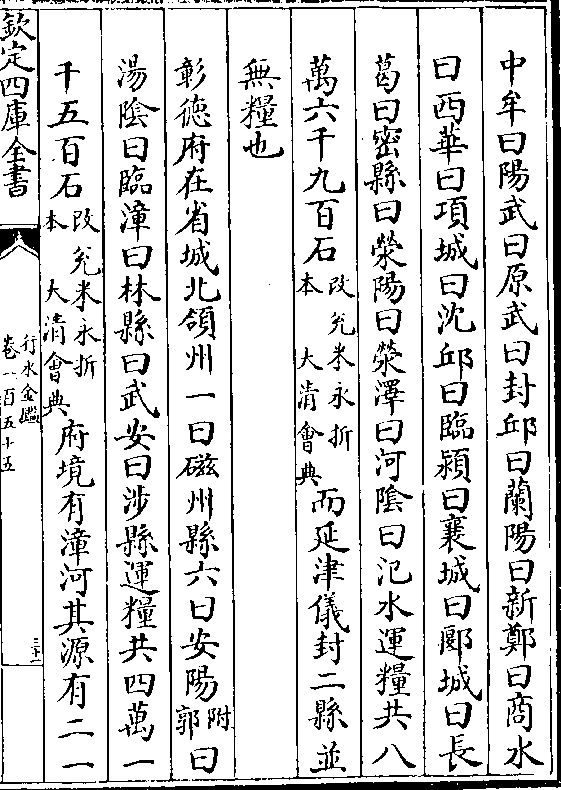 中牟曰陽武曰原武曰封邱曰蘭陽曰新鄭曰商水
曰西華曰項城曰沈邱曰臨潁曰襄城曰郾城曰長
葛曰密縣曰滎陽曰滎澤曰河陰曰汜水運糧共八
萬六千九百石改兊米永折本大清會典而延津儀封二縣並
無糧也
彰徳府在省城北領州一曰磁州縣六曰安陽附郭曰
湯陰曰臨漳曰林縣曰武安曰涉縣運糧共四萬一
千五百石改兊米永折本大清會典府境有漳河其源有二一
欽定四庫全書
行水金鑑
卷一百五十五